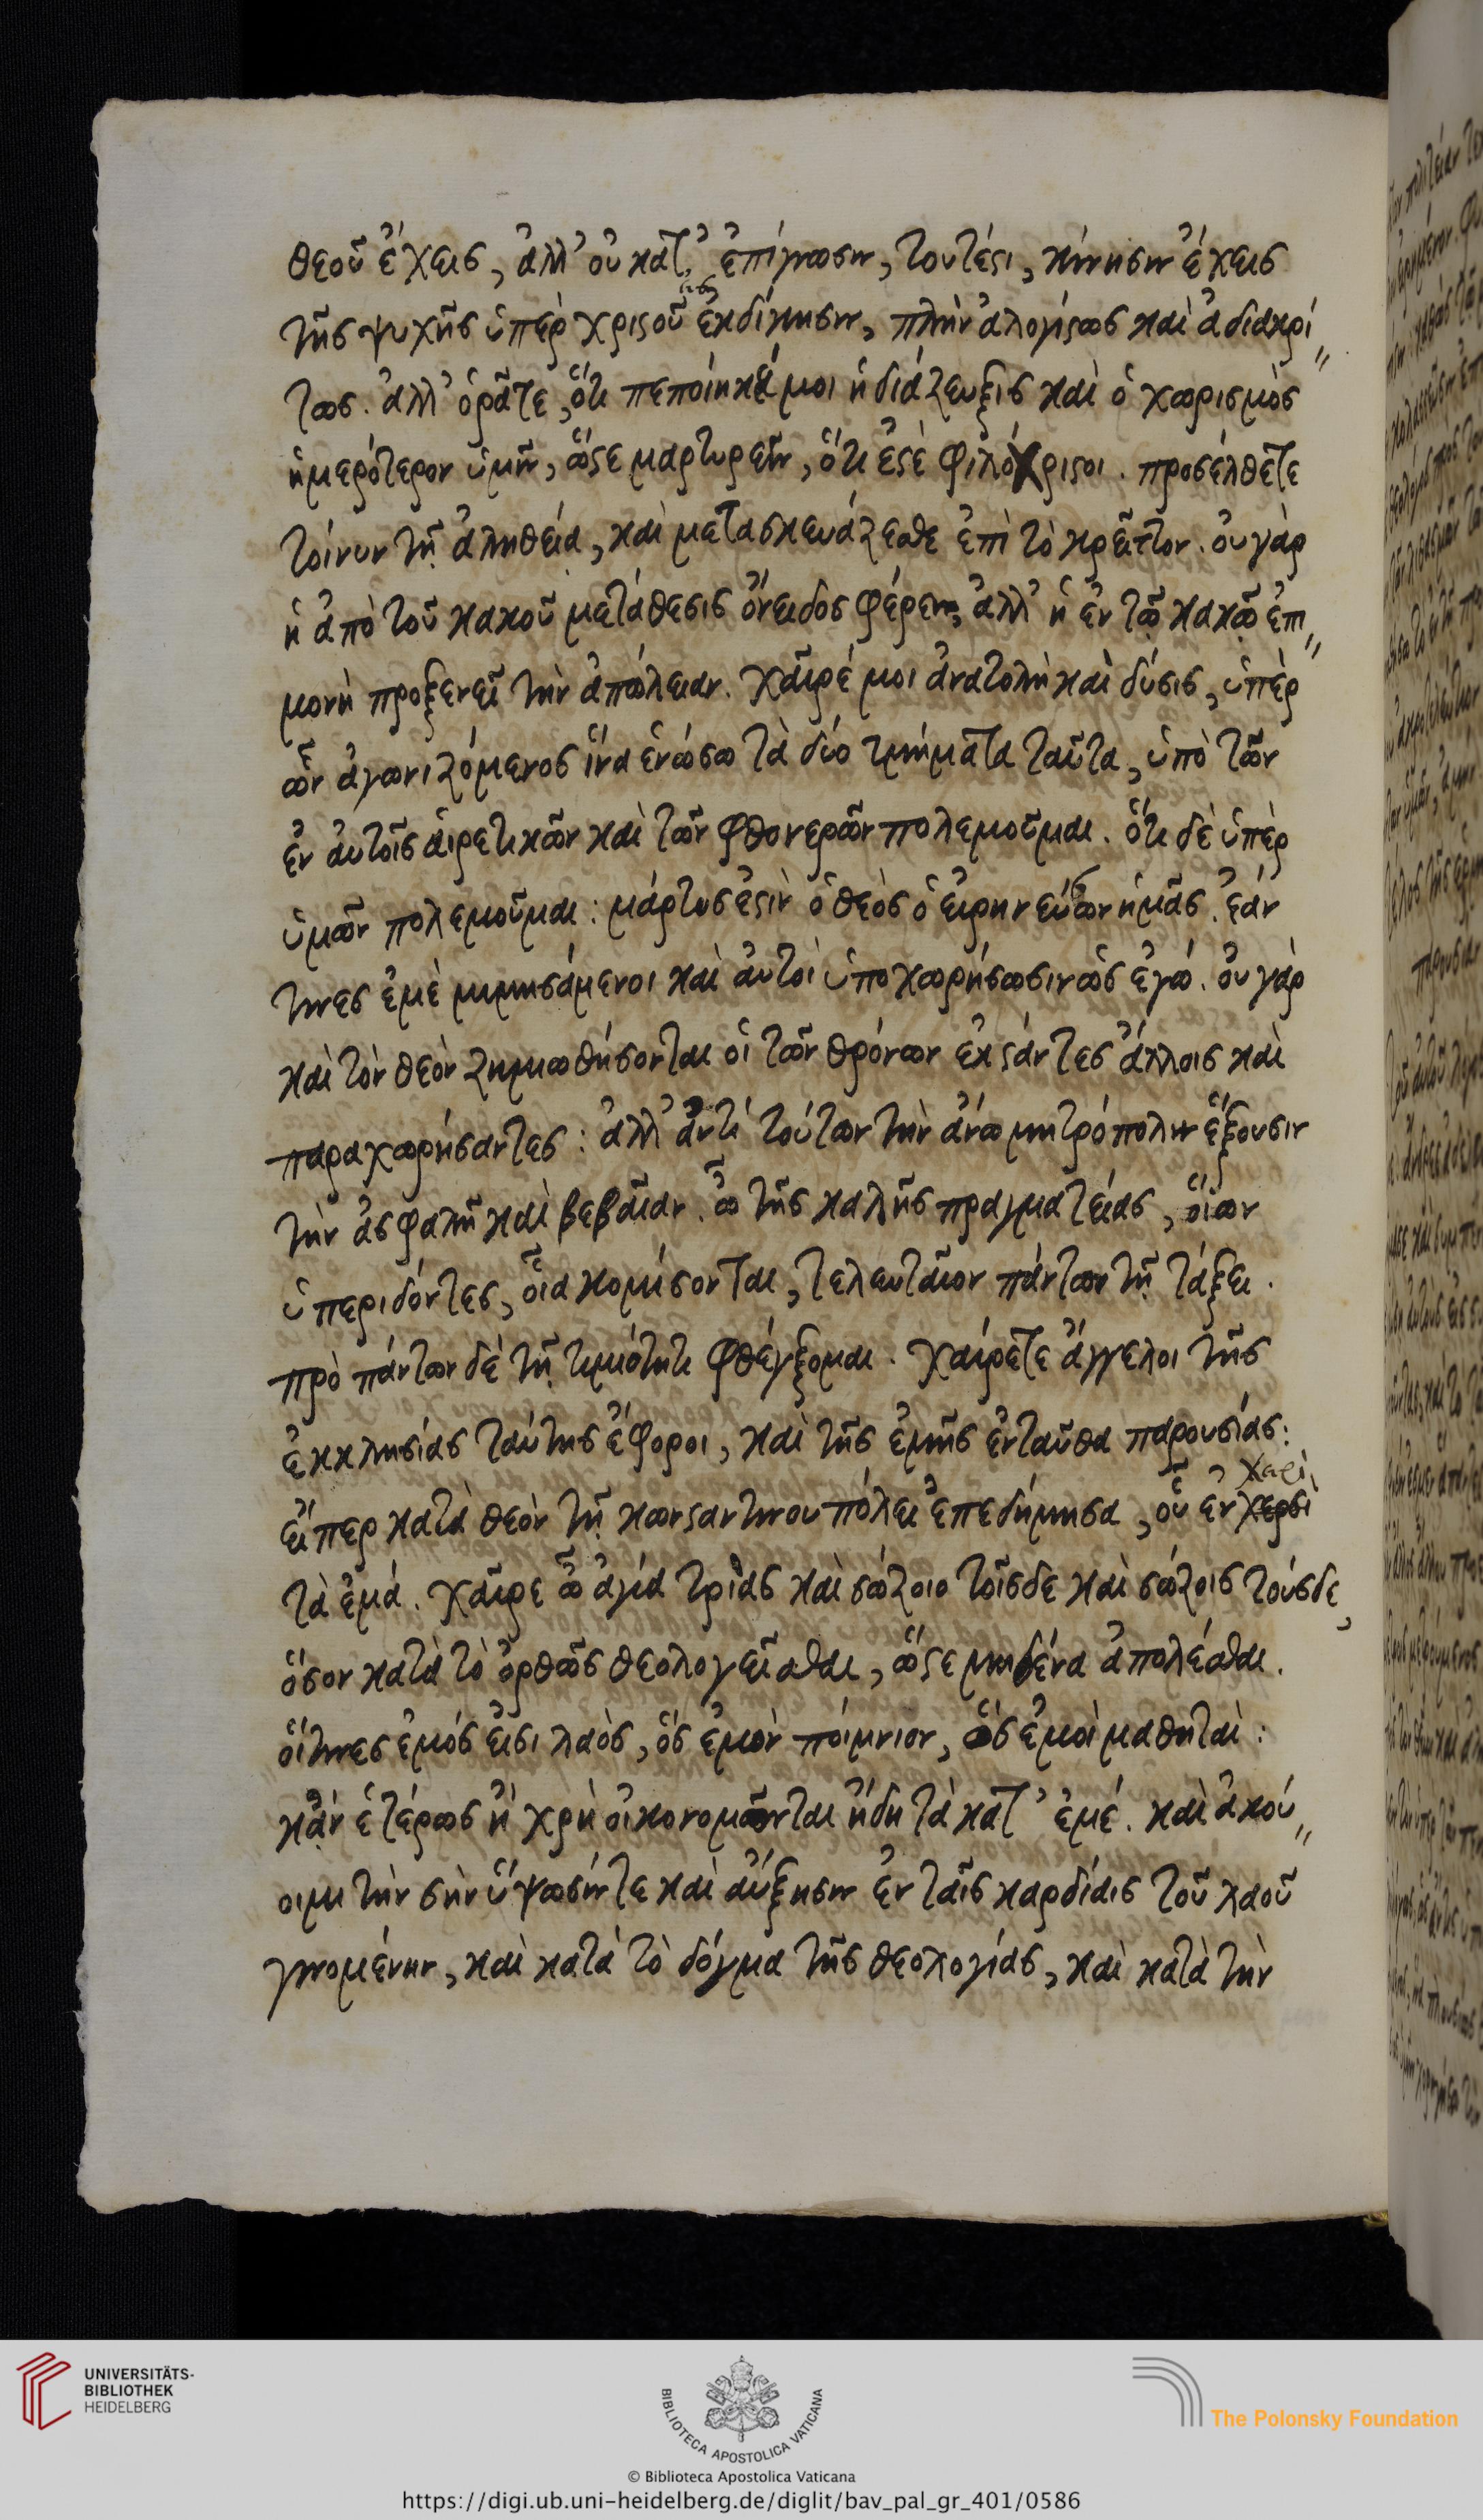 θεοῦ ἔχεις, ἀλλ' οὐ κατ' ἐπίγνωσιν, τουτέστι, κίνησιν ἔχεις
τῆς ψυχῆς ὑπὲρ χριστοῦ ἐκδίκησιν, πλὴν ἀλογίστως καὶ ἀδιακρί
τως. ἀλλ' ὁρᾶτε, ὅτι πεποίηκέ μοι ἡ διάζευξις καὶ ὁ χωρισμὸς
ἡμερότερον ὑμῖν, ὥστε μαρτυρεῖν, ὅτι ἐστὲ φιλόχριστοι. προσέλθετε
τοίνυν τῇ ἀληθείᾳ, καὶ μετασκευάζεσθε ἐπὶ τὸ κρεῖττον. οὐ γὰρ
ἡ ἀπὸ τοῦ κακοῦ μετάθεσις ὄνειδος φέρειν, ἀλλ' ἡ ἐν τῷ κακῷ ἐπι
μονὴ προξενεῖ τὴν ἀπώλειαν. χαῖρέ μοι ἀνατολὴ καὶ δύσις, ὑπὲρ
ὧν ἀγωνιζόμενος ἵνα ἑνώσω τὰ δύο τμήματα ταῦτα, ὑπὸ τῶν
ἐν αὐτοῖς αἱρετικῶν καὶ τῶν φθονερῶν πολεμοῦμαι. ὅτι δὲ ὑπὲρ
ὑμῶν πολεμοῦμαι: μάρτυς ἐστὶν ὁ θεὸς ὁ εἰρηνεύσων ἡμᾶς. ἐάν
τινες ἐμὲ μιμησάμενοι καὶ αὐτοὶ ὑποχωρήσωσιν ὡς ἐγώ. οὐ γὰρ
καὶ τὸν θεὸν ζημιωθήσονται οἱ τῶν θρόνων ἐκστάντες ἄλλοις καὶ
παραχωρήσαντες: ἀλλ' ἀντὶ τούτων τὴν ἄνω μητρόπολιν ἕξουσιν
τὴν ἀσφαλῆ καὶ βεβαίαν. ὦ τῆς καλῆς πραγματείας, οἵων
ὑπεριδόντες, οἷα κομίσονται, τελευταῖον πάντων τῇ τάξει.
πρὸ πάντων δὲ τῇ τιμιότητι φθέγξομαι. χαίρετε ἄγγελοι τῆς
ἐκκλησίας ταύτης ἔφοροι, καὶ τῆς ἐμῆς ἐνταῦθα παρουσίας:
χερὶ
εἴπερ κατὰ θεὸν τῇ κωνσταντινουπόλει ἐπεδήμησα, οὗ ἐν χερσὶ
τὰ ἐμά. χαῖρε ὦ ἁγία τριὰς καὶ σώζοιο τοῖσδε καὶ σώζοις τούσδε,
ὅσον κατὰ τὸ ὀρθῶς θεολογεῖσθαι, ὥστε μηδένα ἀπολέσθαι.
οἵτινες ἐμός εἰσι λαὸς, ὃς ἐμὸν ποίμνιον, ὃς ἐμοὶ μαθηταὶ:
κἂν ἑτέρως ἢ χρὴ οἰκονομῶνται ἤδη τὰ κατ' ἐμέ. καὶ ἀκού
οιμι τὴν σὴν ὕψωσίν τε καὶ αὔξησιν ἐν ταῖς καρδίαις τοῦ λαοῦ
γινομένην, καὶ κατὰ τὸ δόγμα τῆς θεολογίας, καὶ κατὰ τὴν
UNIVERSITÄTS-
BIBLIOTHEK
HEIDELBERG
BIBLIOTECA APOSTOLICA VATICANA
The Polonsky Foundation
© Biblioteca Apostolica Vaticana
https://digi.ub.uni-heidelberg.de/diglit/bav_pal_gr_401/0586